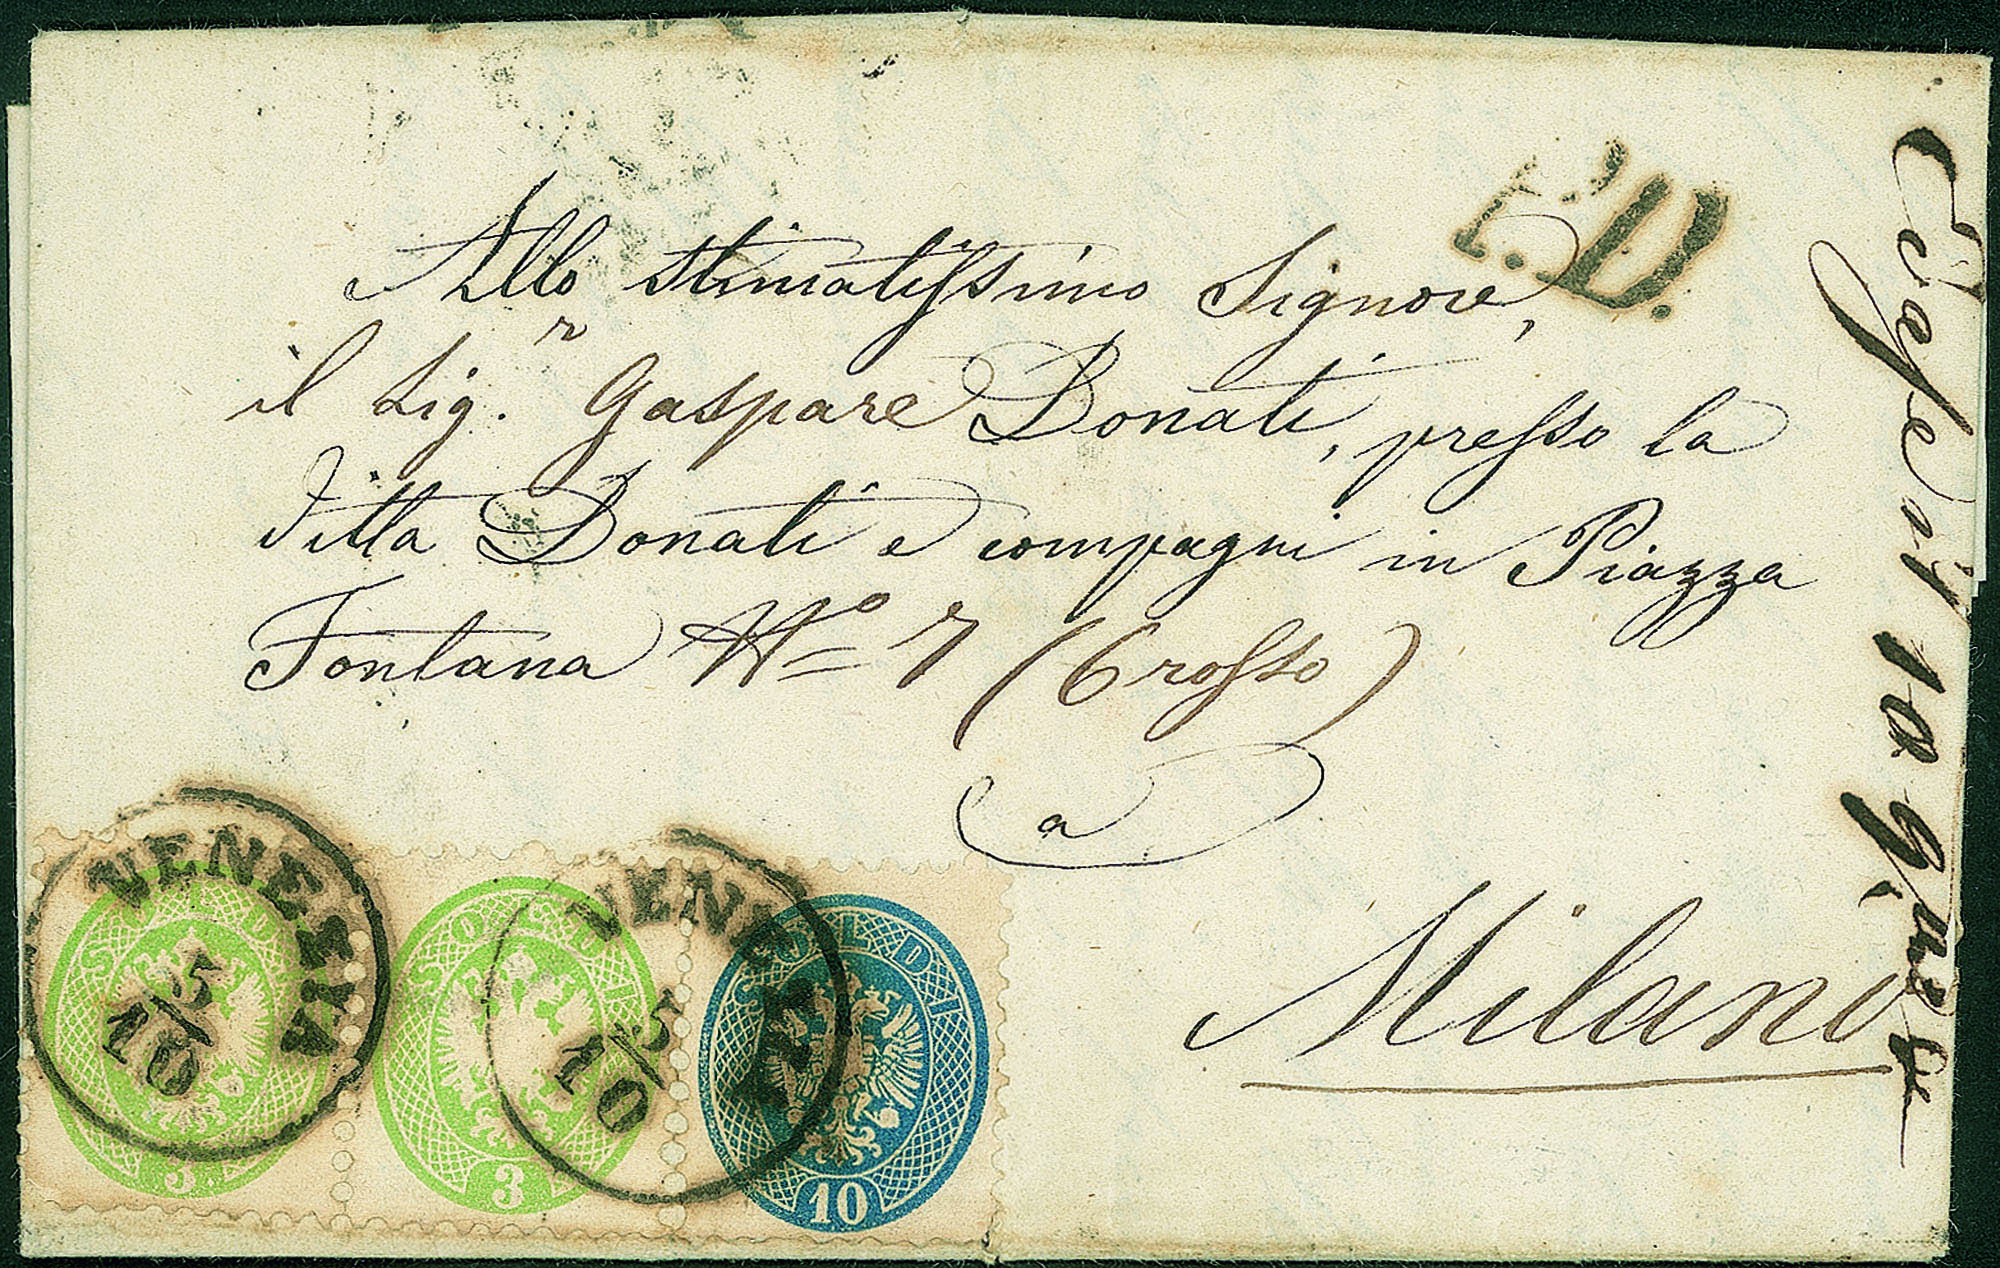 P.D.
Allo stimatissimo Signore,
il Sig.r Gaspare Donati, presso la
ditta Donati e compagni in Piazza
Fontana No 7 (6 rosso)
a
Milano
VENEZIA
10/5
VENEZIA
10/5
SOLDI
3
SOLDI
3
SOLDI
10
10